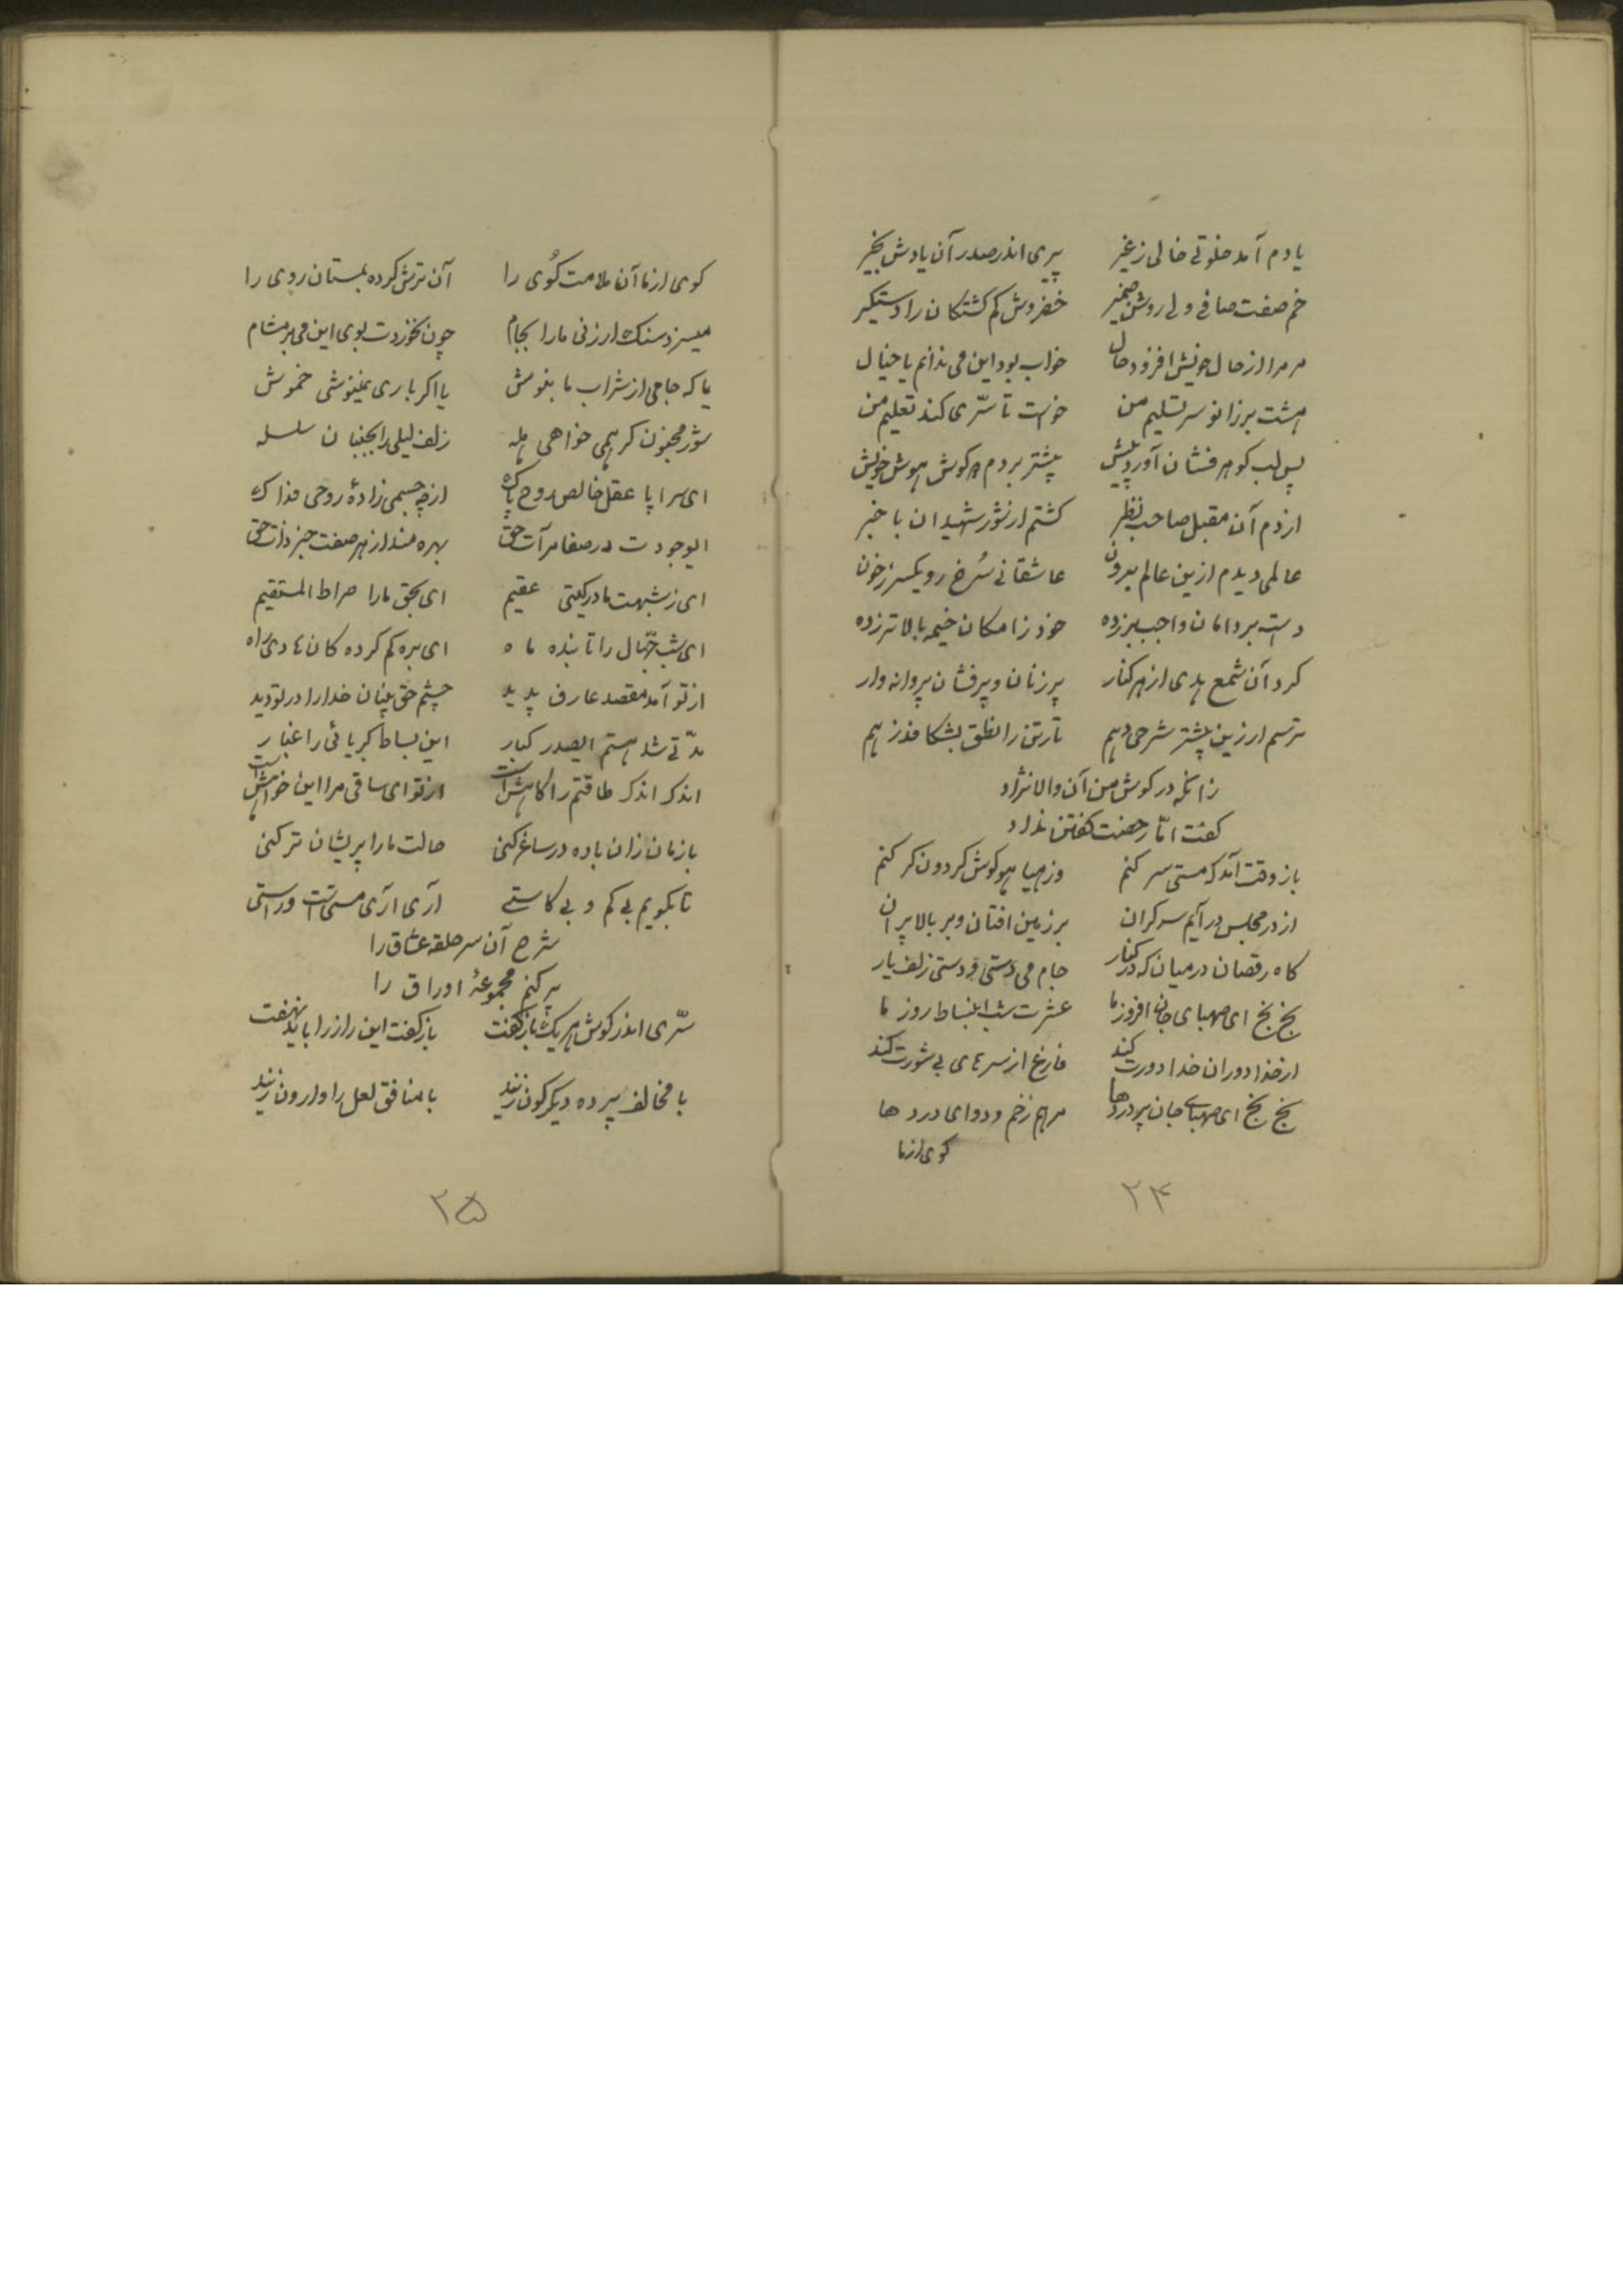 یادم آمد خلوتی خالی ز غیر پیری اندر صدر آن یادش بخیر
خم صفت صافی دل روشن ضمیر خضروش کم کشتکان را دستکیر
مر مرا از حال خویش افزود حال خواب بود این می ندانم یا خیال
هشت بر زانو سر تسلیم من خواست تا سرّی کند تعلیم من
پس لب کوهر فشان آورد پیش پیشتر بردم کوش هوش خویش
از دم آن مقبل صاحب نظر کشتم از شور شهیدان با خبر
عالمی دیدم ازین عالم برون عاشقانی سُرخ رو یکسر ز خون
دست بر دامان واجب بر زده خود ز امکان خیمه بالاتر زده
کرد آن شمع هدی از هر کنار پرزنان و پرفشان پروانه وار
ترسم ار زین پیشتر شرحی دهم تارتن را نطق بشکافد ز هم
زانکه در کوش من آن والا نژاد
کفت امّا رخصت کفتن نداد
باز وقت آمد که مستی سر کنم وز هیاهو کوش کردون کر کنم
از در مجلس در آیم سرکران بر زمین افتان و بر بالا پران
کاه رقصان در میان که در کنار جام می دستی و دستی زلف یار
بخ بخ ای صهبای جان افروز ما عشرت شب انبساط روز ما
از خدا دوران خدا دورت کند فارغ از سرهای بی شورت کند
بخ بخ ای صهبای جان پرورد ها مرهم زخم و دوای درد ها
کوی از ما
۲۴
کوی از ما آن ملامت کُوی را آن ترش کرده بمستان روی را
میسزد سنک ار زنی ما را بجام چون نخوردت بوی این می بر مشام
یا که جامی از شراب ما بنوش یا اکر باری نمینوشی خموش
شور مجنون کر همی خواهی هله زلف لیلی را بجنبان سلسله
ای سراپا عقل خالص روح پاک از چه جسمی زادهٔ روحی فداک
ای وجودت در صفا مرآت حق بهره مند از هر صفت جز ذات حق
ای ز شبهت مادر کیتی عقیم ای بحق ما را صراط المستقیم
ای شب جهّال را تابنده ماه ای بره کم کرده کان هادی راه
از تو آمد مقصد عارف پدید چشم حق بینان خدا را در تو دید
مدّتی شد هستم ای صدر کبار این بساط کبریائی را غبار
اندک اندک طاقتم را کاهش است از تو ای ساقی مرا این خواهش است
باز مان زان باده در ساغر کنی حالت ما را پریشان تر کنی
تا بکویم بی کم و بی کاستی آری آری مستی است و راستی
شرح آن سر حلقه عشاق را
پر کنم مجموعهٔ اوراق را
سرّی اندر کوش هر یک باز کفت باز کفت این راز را باید نهفت
با مخالف پرده دیکر کون زنید با منافق نعل را وارون زنید
۲۵